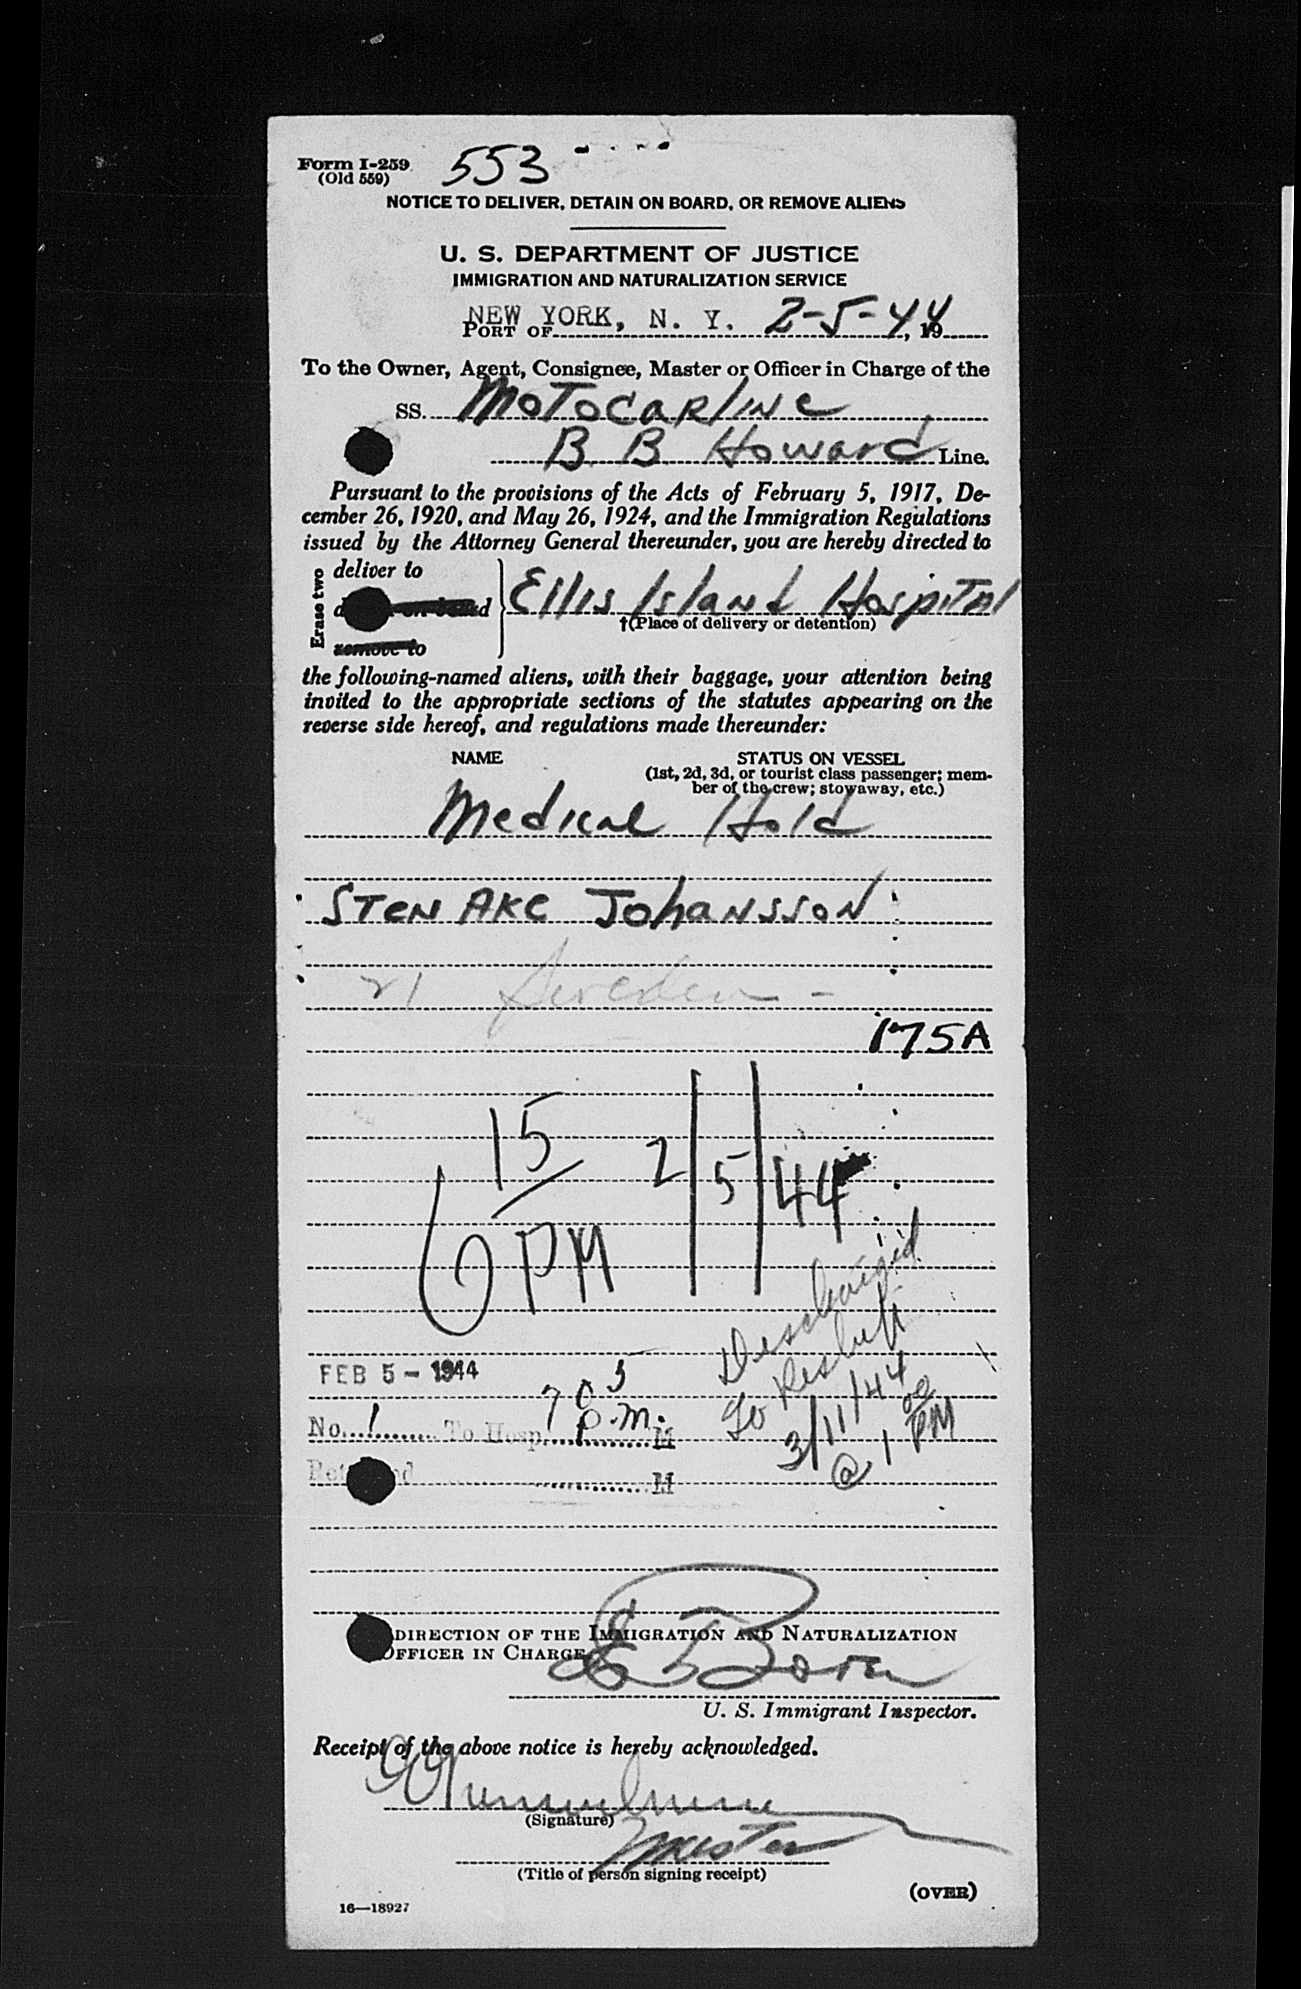 Form I-259
(Old 559)
553
NOTICE TO DELIVER, DETAIN ON BOARD, OR REMOVE ALIENS
U. S. DEPARTMENT OF JUSTICE
IMMIGRATION AND NATURALIZATION SERVICE
NEW YORK, N. Y. 2-5-44
PORT OF , 19
To the Owner, Agent, Consignee, Master or Officer in Charge of the
SS. MOTOCARLINE
B B Howard Line.
Pursuant to the provisions of the Acts of February 5, 1917, De-
cember 26, 1920, and May 26, 1924, and the Immigration Regulations
issued by the Attorney General thereunder, you are hereby directed to
Erase two
deliver to
remove to
Ellis Island Hospital
†(Place of delivery or detention)
the following-named aliens, with their baggage, your attention being
invited to the appropriate sections of the statutes appearing on the
reverse side hereof, and regulations made thereunder:
NAME STATUS ON VESSEL
(1st, 2d, 3d, or tourist class passenger; mem-
ber of the crew; stowaway, etc.)
Medical Hold
STEN AKE JOHANSSON
21 Sweden -
175A
6 15 PM 2/5/44
Discharged
to
3/11/44
@ 1 00 PM
FEB 5 - 1944
7 05
No. 1 To Hosp. P.M. M
M
DIRECTION OF THE IMMIGRATION AND NATURALIZATION
OFFICER IN CHARGE
U. S. Immigrant Inspector.
Receipt of the above notice is hereby acknowledged.
(Signature)
Master
(Title of person signing receipt)
(OVER)
16—18927